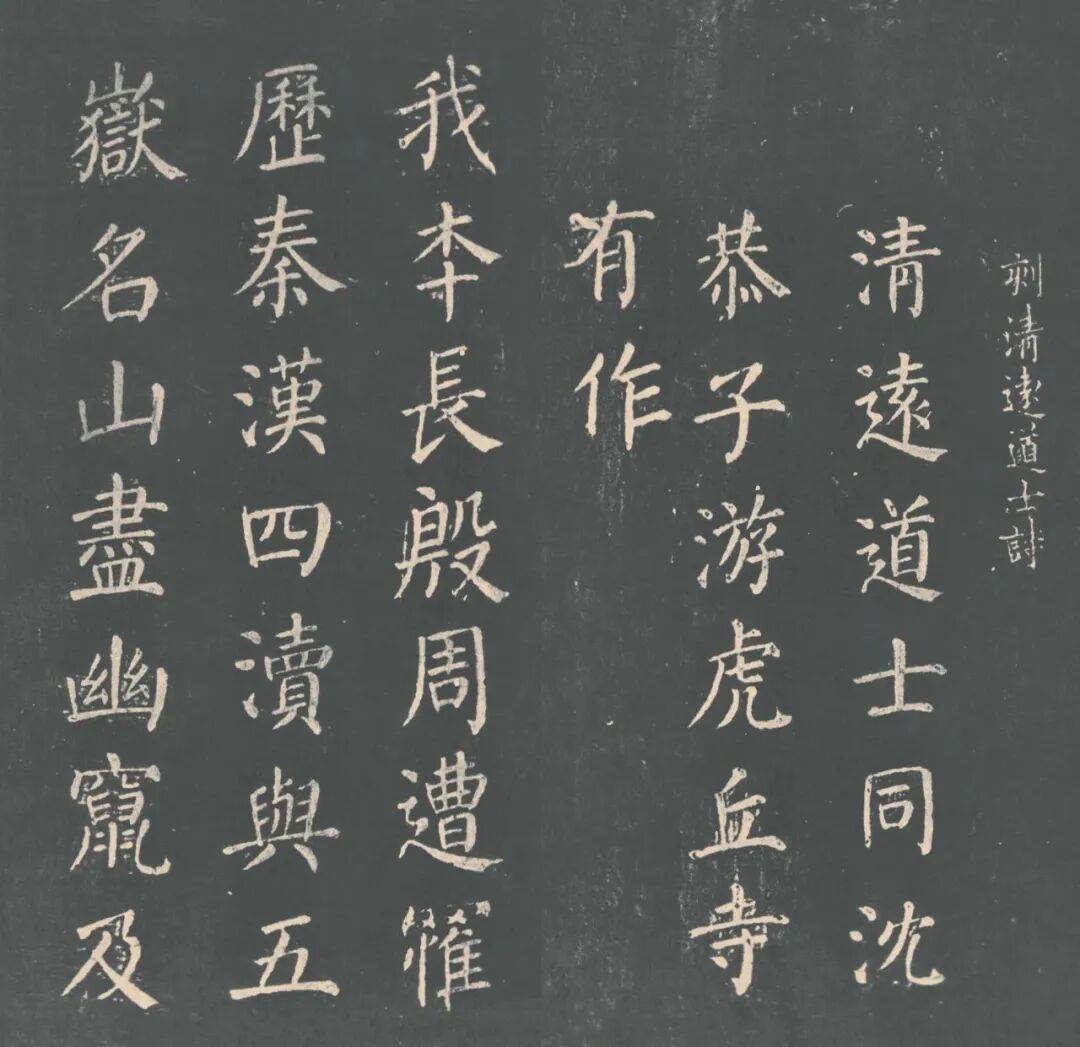 刻清遠道士詩
清遠道士同沈
恭子游虎丘寺
有作
我本長殷周遭罹
歷秦漢四瀆與五
嶽名山盡幽竄及